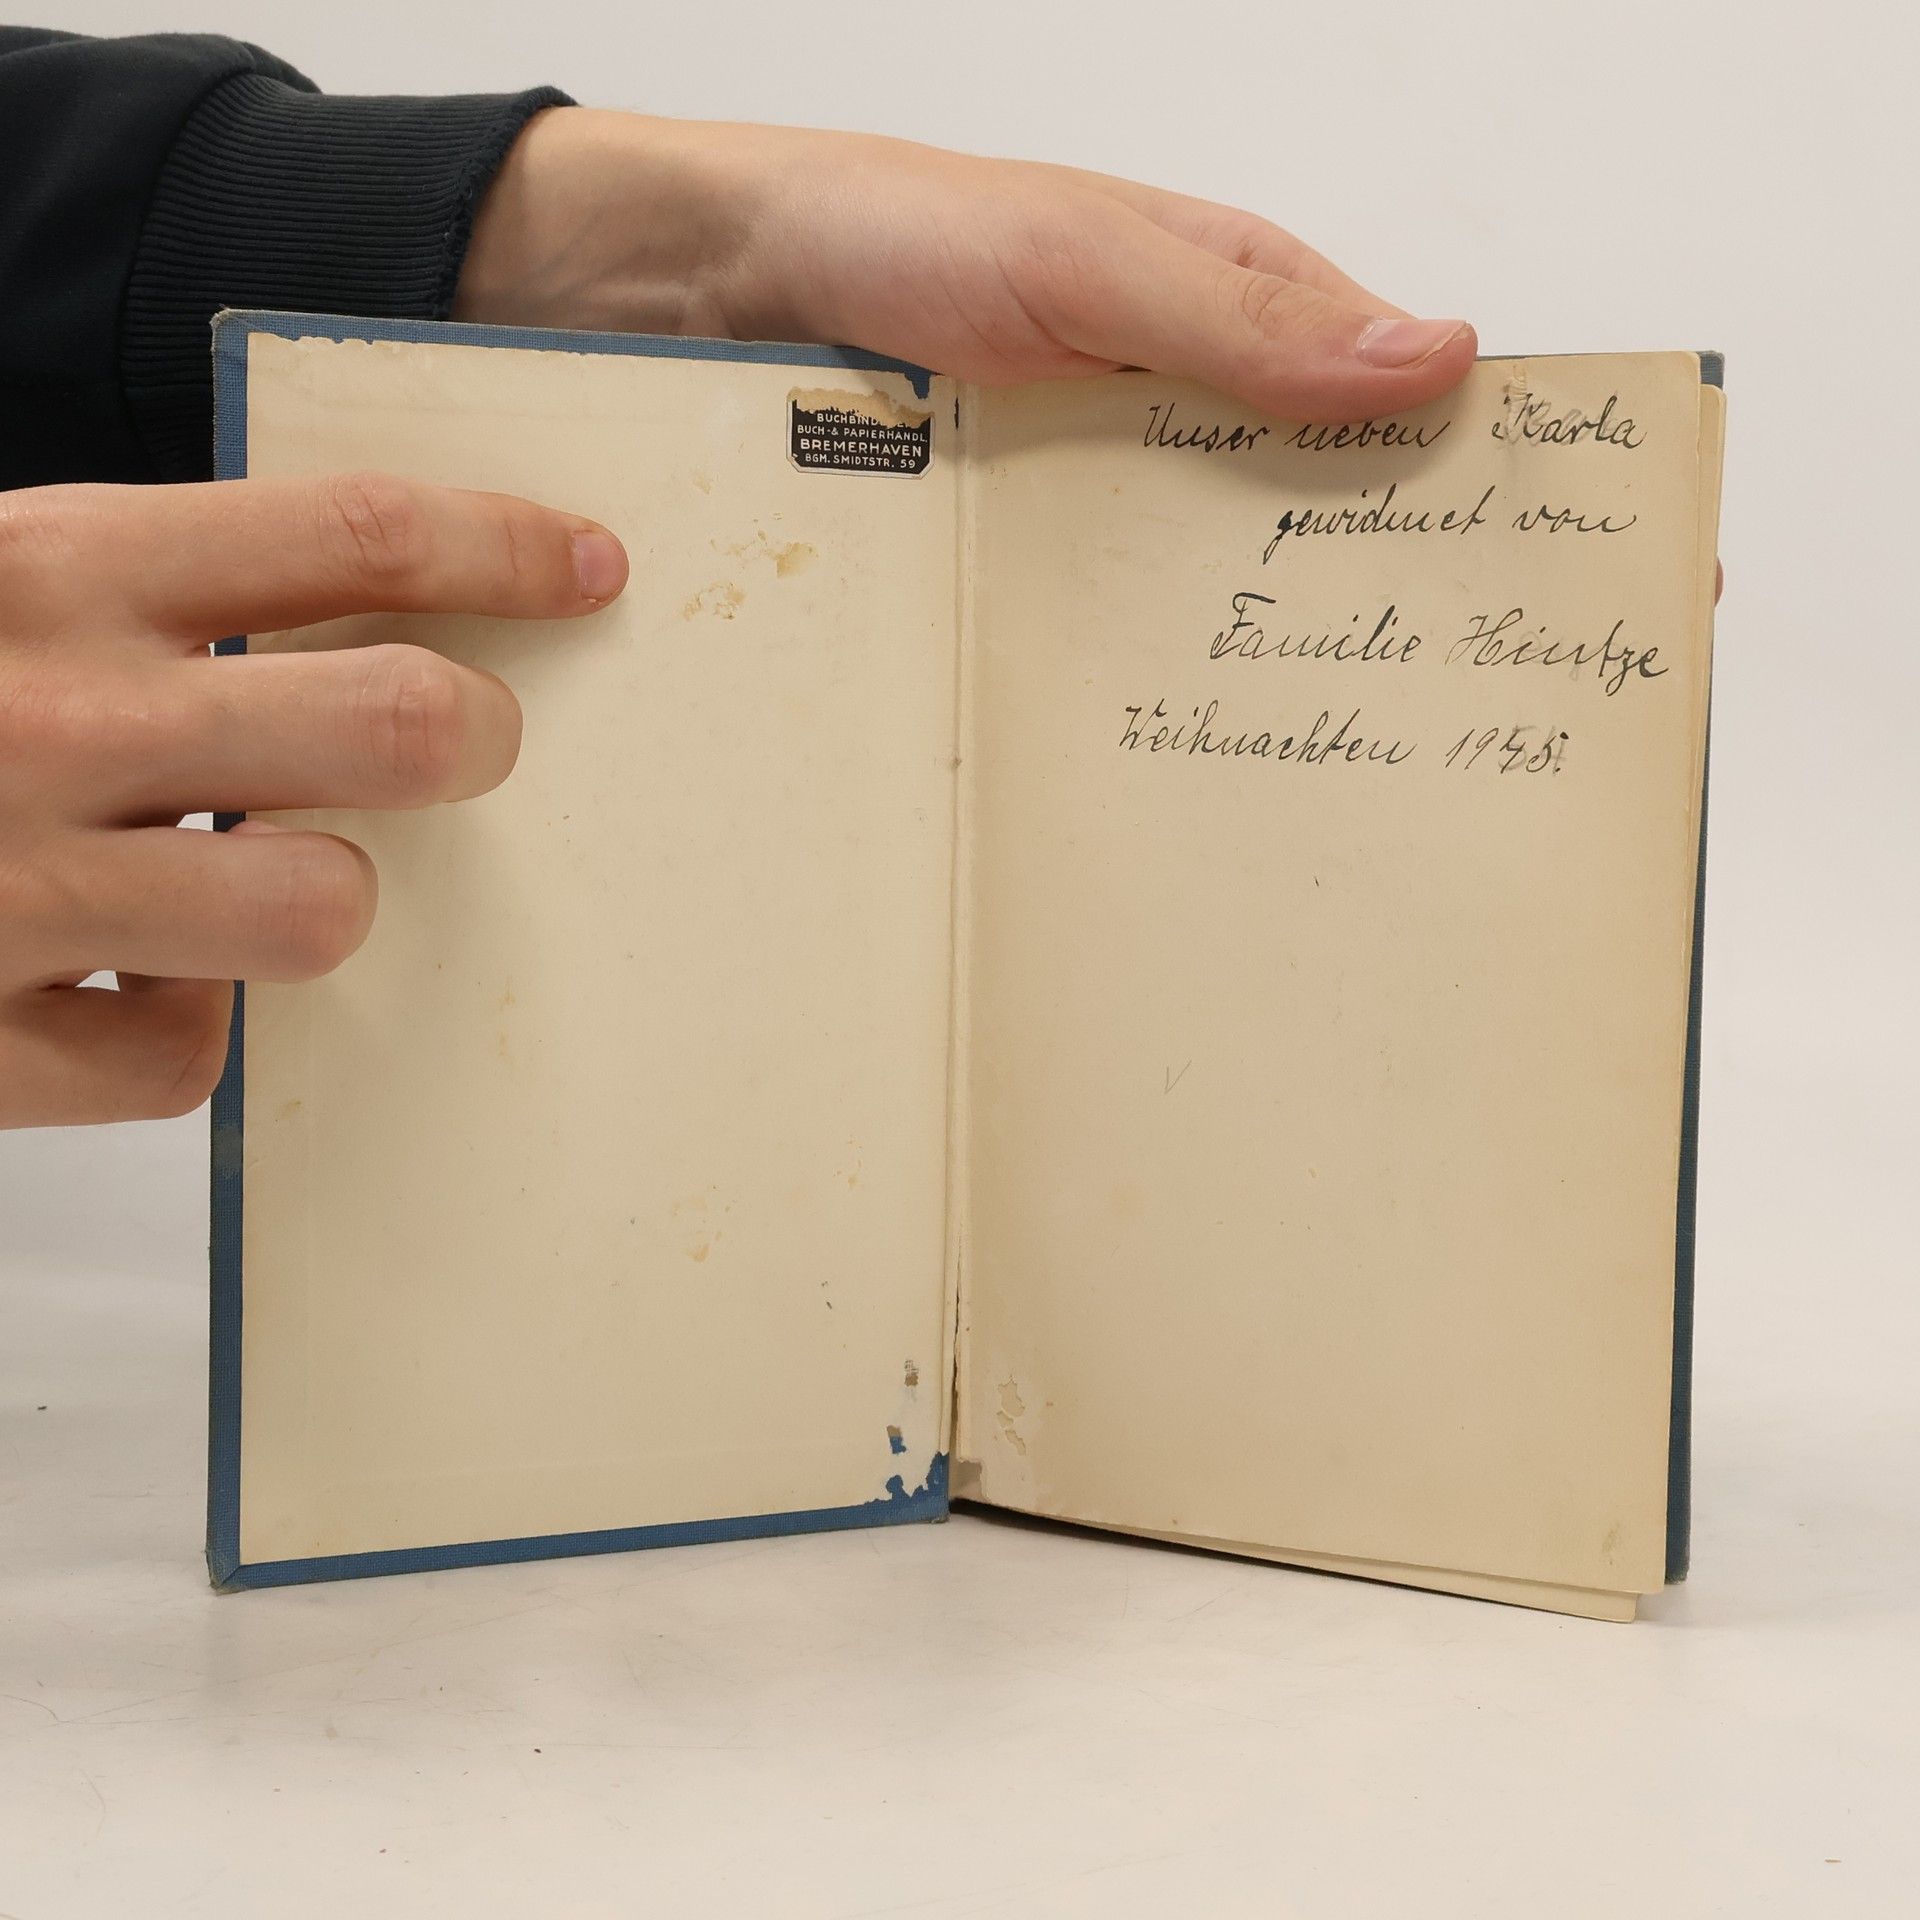 BUCHBINDEREI
BUCH- & PAPIERHANDL.
BREMERHAVEN
BGM. SMIDTSTR. 59
Unser lieben Karla
gewidmet von
Familie Hintze
Weihnachten 1945.